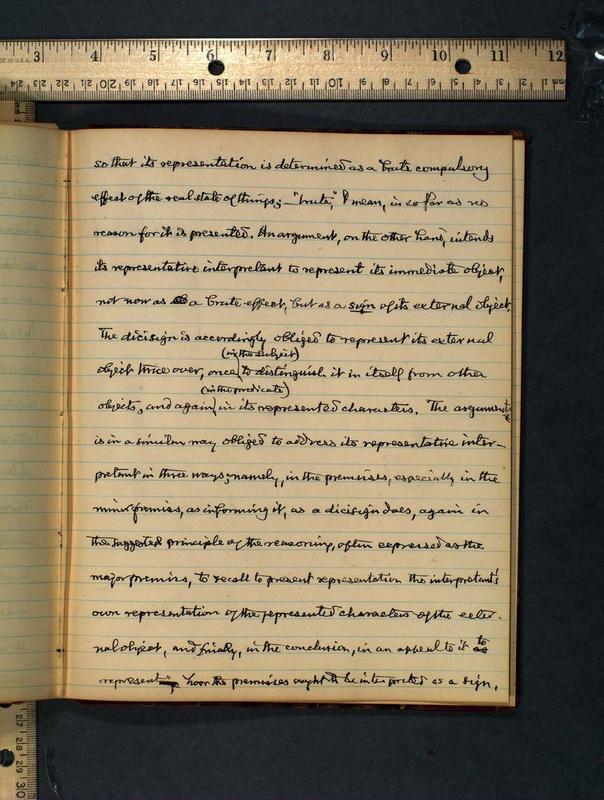 so that its representation is determined as a brute compulsory
effect of the real state of things; — "brute," I mean, in so far as no
reason for it is presented. An argument, on the other hand, intends
its representative interpretant to represent its immediate object,
not now as a brute effect, but as a sign of its external object.
The dicisign is accordingly obliged to represent its external
(in the subject)
object twice over, once to distinguish it in itself from other
(in the predicate)
objects, and again in its represented characters. The argument
is in a similar way obliged to address its representative inter-
pretant in three ways; namely, in the premisses, especially in the
minor premiss, as informing it, as a dicisign does, again in
the suggested principle of the reasoning, often expressed as the
major premiss, to recall to present representation the interpretant's
own representation of the represented characters of the exter-
nal object, and finally, in the conclusion, in an appeal to it to
represent how the premisses ought to be interpreted as a sign,
3 4 5 6 7 8 9 10 11 12